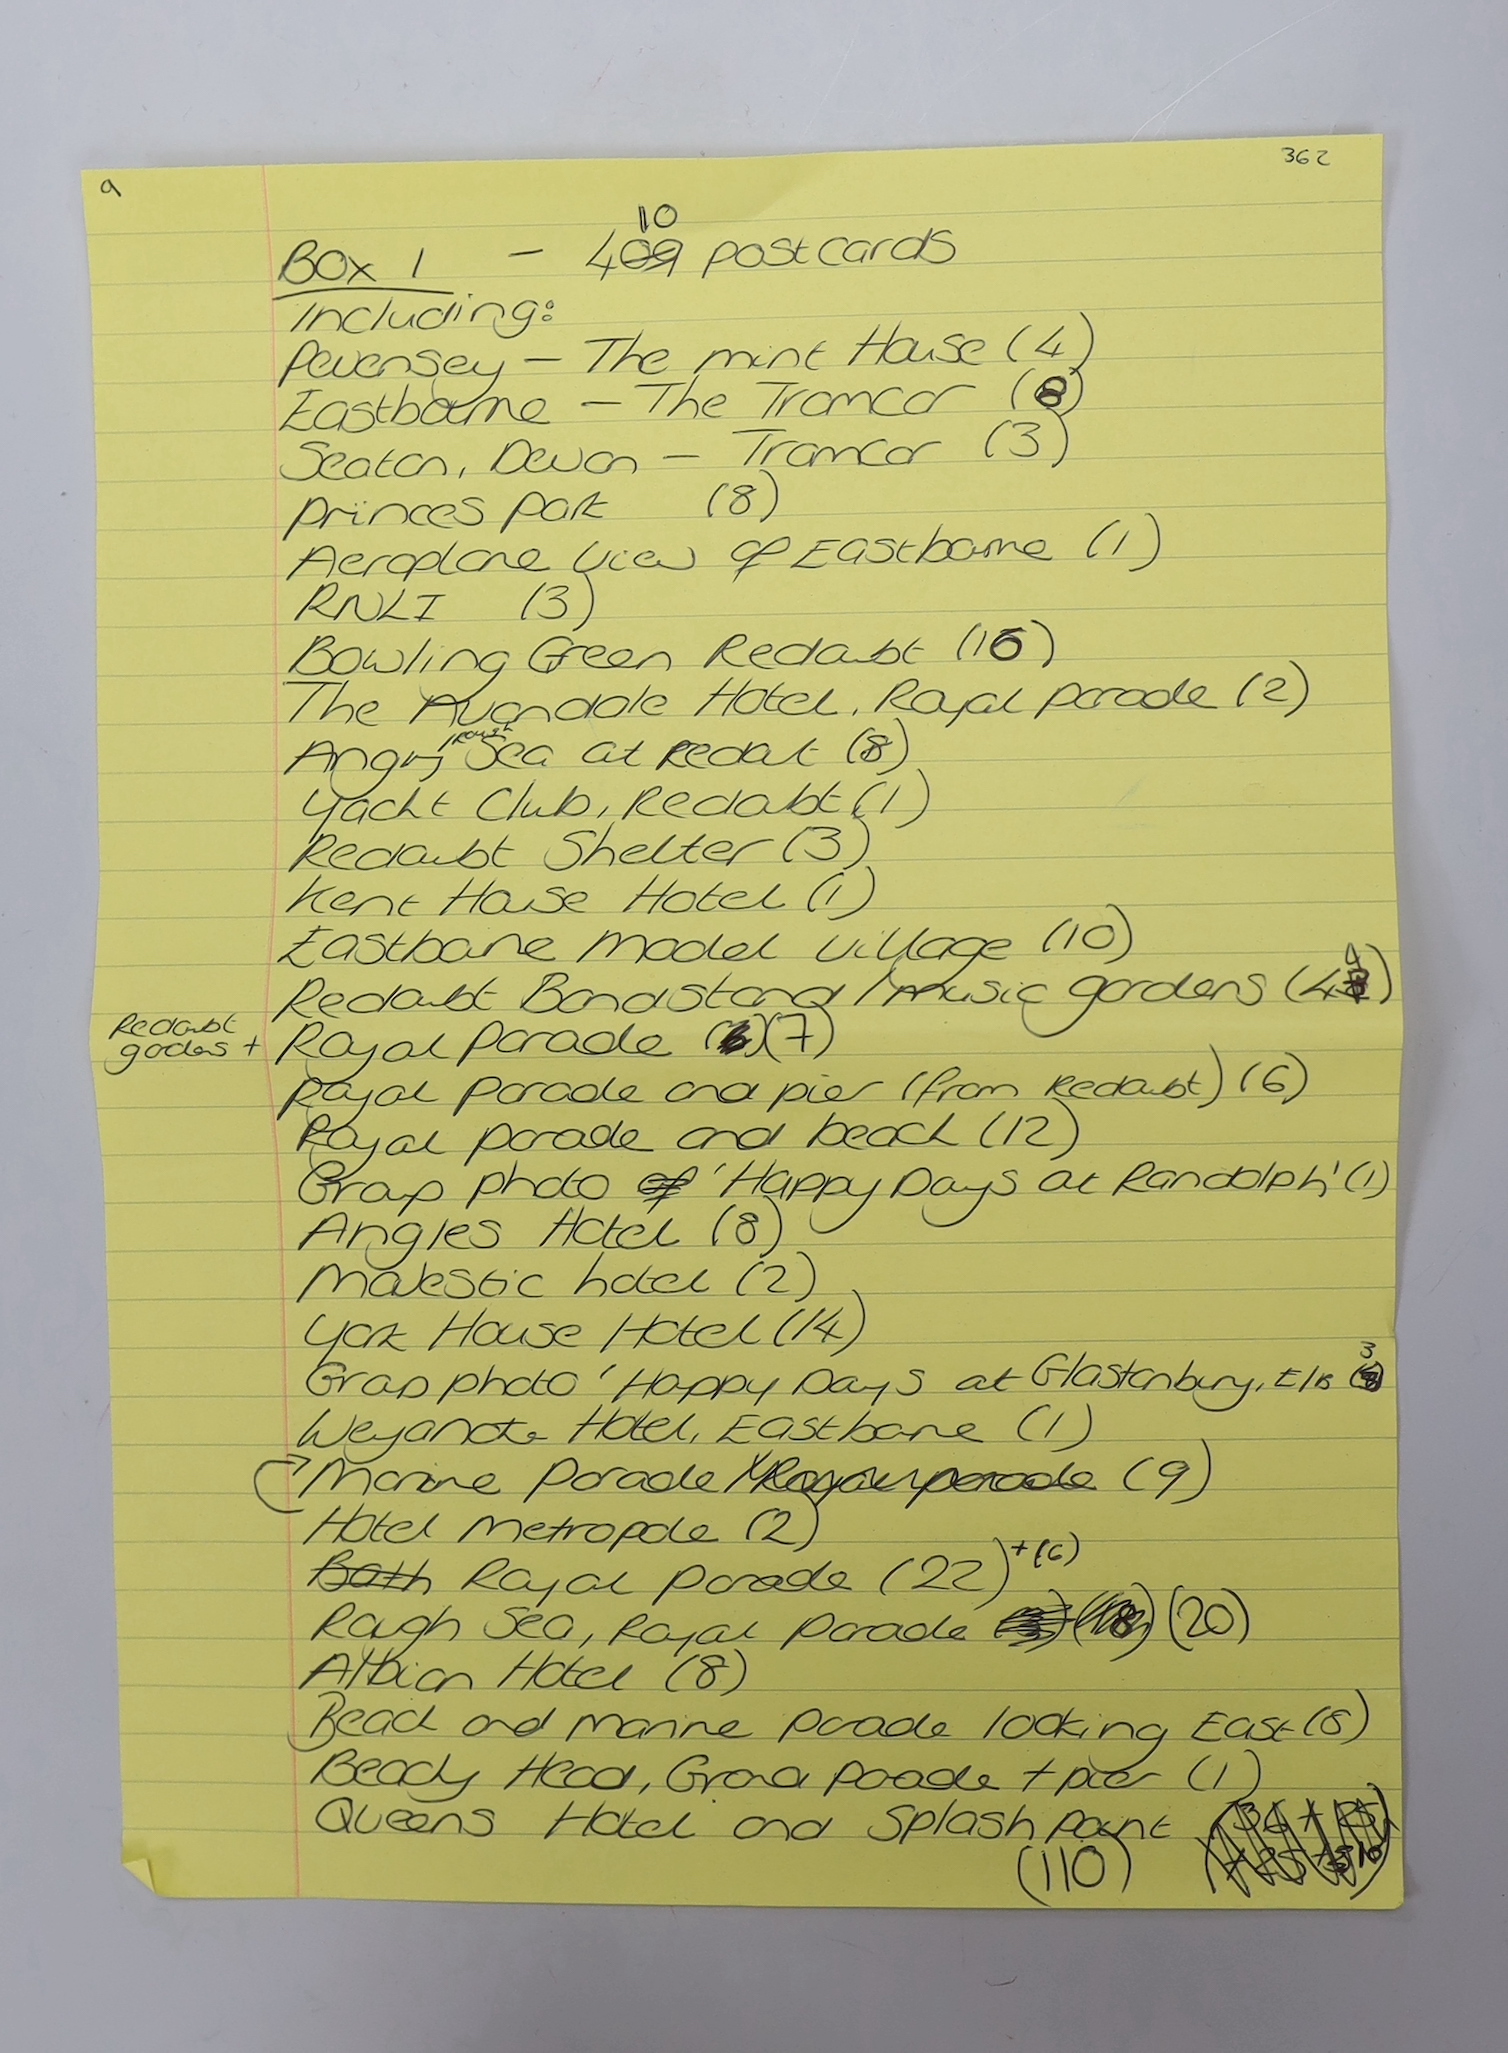 9
362
10
Box 1 - 409 postcards
Including:
Pevensey - The mint House (4)
Eastbourne - The Tramcar (8)
Seaton, Devon - Tramcar (3)
Princes Park (8)
Aeroplane View of Eastbourne (1)
RNLI (3)
Bowling Green Redoubt (16)
The Avondale Hotel, Royal parade (2)
Angry /rough Sea at Redout (8)
Yacht Club, Redoubt (1)
Redoubt Shelter (3)
Kent House Hotel (1)
Eastbourne Model Village (10)
Redoubt Bandstand / music gardens (44)
Redoubt
gardens + Royal Parade (7)
Royal Parade and pier (from Redoubt) (6)
Royal parade and beach (12)
Group photo of 'Happy Days at Randolph' (1)
Angles Hotel (8)
Majestic hotel (2)
York House Hotel (14)
Group photo 'Happy Days at Glastonbury, E/B (3)
Weyanoke Hotel, Eastbourne (1)
Marine Parade / Royal parade (9)
Hotel Metropole (2)
Both Royal Parade (22) + (6)
Rough Sea, Royal Parade (18) (20)
Albion Hotel (8)
Beach and marine parade looking East (8)
Beachy Head, Grand Parade + pier (1)
Queens Hotel and Splash Point
(110)